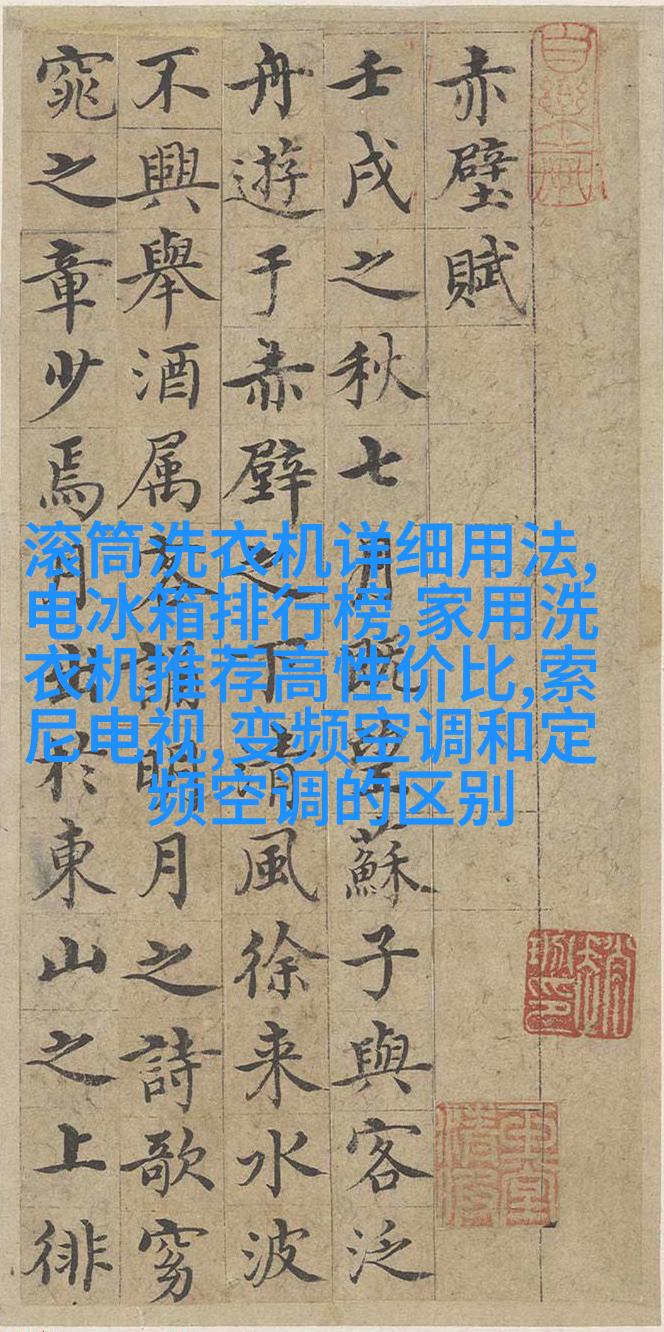 赤壁賦
壬戌之秋七月既望蘇子與客泛
舟遊于赤壁之下清風徐来水波
不興舉酒属客誦明月之詩歌窈
窕之章少焉月出於東山之上徘
滚筒洗衣机详细用法,
电冰箱排行榜,家用洗
衣机推荐高性价比,索
尼电视,变频空调和定
频空调的区别